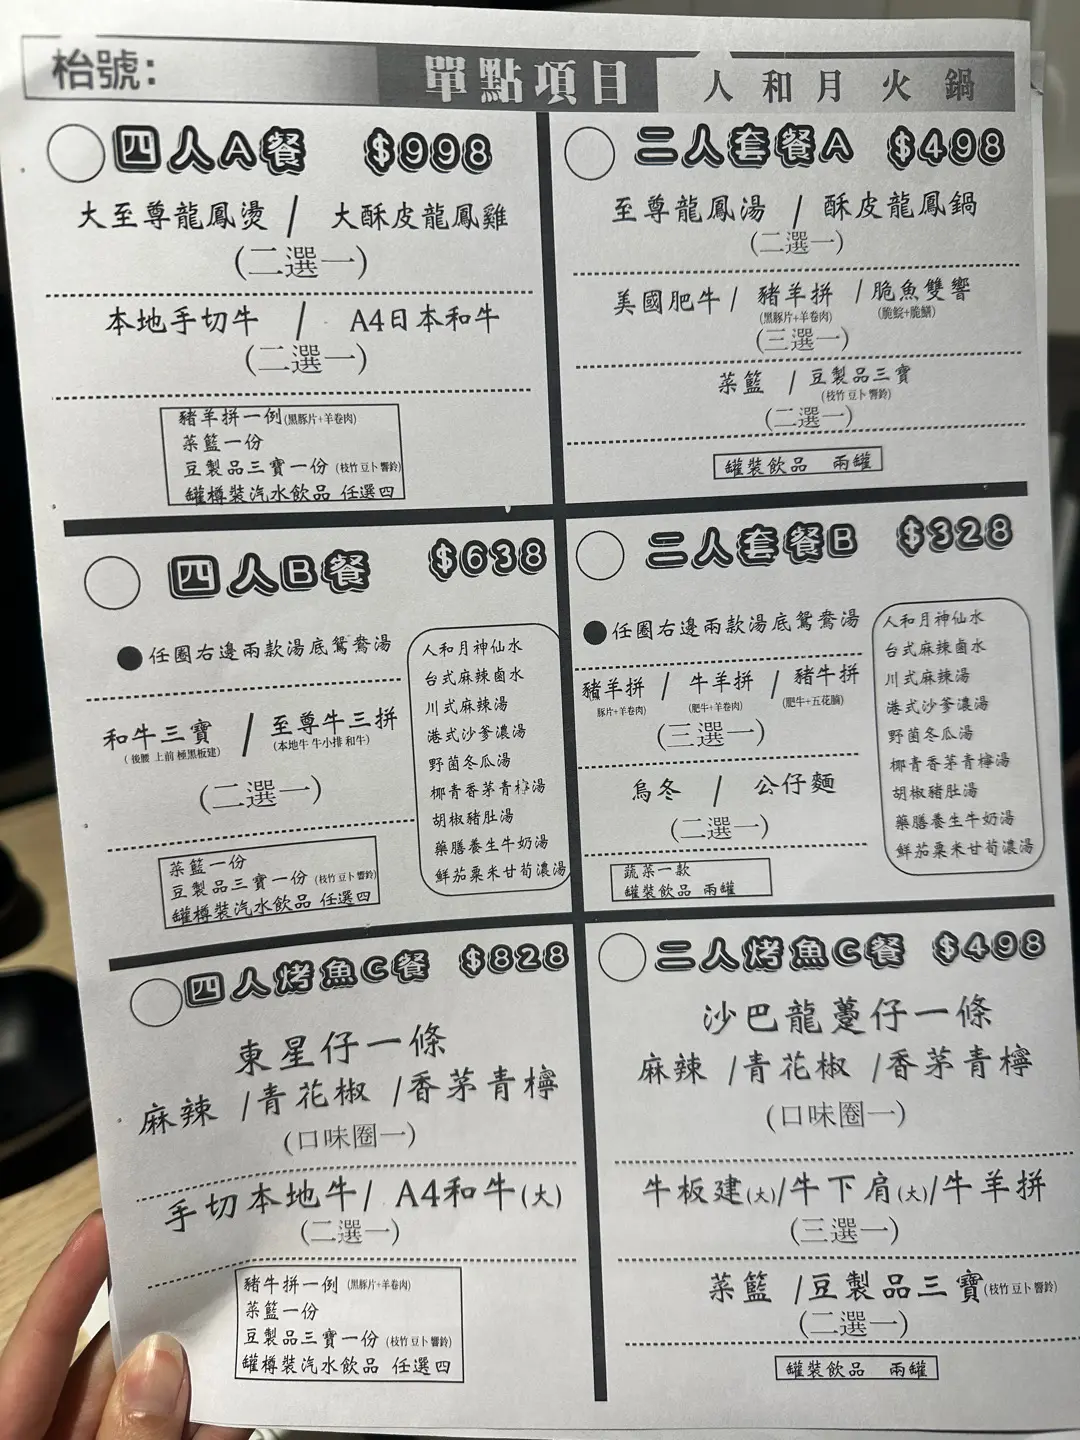 枱號：
單點項目
人和月火鍋
四人A餐 $998
大至尊龍鳳燙 / 大酥皮龍鳳雞
(二選一)
本地手切牛 / A4日本和牛
(二選一)
豬羊拼一例(黑豚片+羊卷肉)
菜籃一份
豆製品三寶一份(枝竹 豆卜 響鈴)
罐樽裝汽水飲品 任選四
二人套餐A $498
至尊龍鳳湯 / 酥皮龍鳳鍋
(二選一)
美國肥牛 / 豬羊拼 / 脆魚雙響
(黑豚片+羊卷肉) (脆鯇+脆鱔)
(三選一)
菜籃 / 豆製品三寶
(枝竹 豆卜 響鈴)
(二選一)
罐裝飲品 兩罐
四人B餐 $638
●任圈右邊兩款湯底鴛鴦湯
和牛三寶 / 至尊牛三拼
(後腰 上前 極黑板建) (本地牛 牛小排 和牛)
(二選一)
菜籃一份
豆製品三寶一份(枝竹 豆卜 響鈴)
罐樽裝汽水飲品 任選四
人和月神仙水
台式麻辣鹵水
川式麻辣湯
港式沙爹濃湯
野菌冬瓜湯
椰青香茅青檸湯
胡椒豬肚湯
藥膳養生牛奶湯
鮮茄粟米甘荀濃湯
二人套餐B $328
●任圈右邊兩款湯底鴛鴦湯
豬羊拼 / 牛羊拼 / 豬牛拼
(豚片+羊卷肉) (肥牛+羊卷肉) (肥牛+五花腩)
(三選一)
烏冬 / 公仔麵
(二選一)
蔬菜一款
罐裝飲品 兩罐
人和月神仙水
台式麻辣鹵水
川式麻辣湯
港式沙爹濃湯
野菌冬瓜湯
椰青香茅青檸湯
胡椒豬肚湯
藥膳養生牛奶湯
鮮茄粟米甘荀濃湯
四人烤魚C餐 $828
東星仔一條
麻辣 /青花椒 /香茅青檸
(口味圈一)
手切本地牛/ A4和牛(大)
(二選一)
豬牛拼一例(黑豚片+羊卷肉)
菜籃一份
豆製品三寶一份(枝竹 豆卜 響鈴)
罐樽裝汽水飲品 任選四
二人烤魚C餐 $498
沙巴龍躉仔一條
麻辣 /青花椒 /香茅青檸
(口味圈一)
牛板建(大)/牛下肩(大)/牛羊拼
(三選一)
菜籃 /豆製品三寶(枝竹 豆卜 響鈴)
(二選一)
罐裝飲品 兩罐